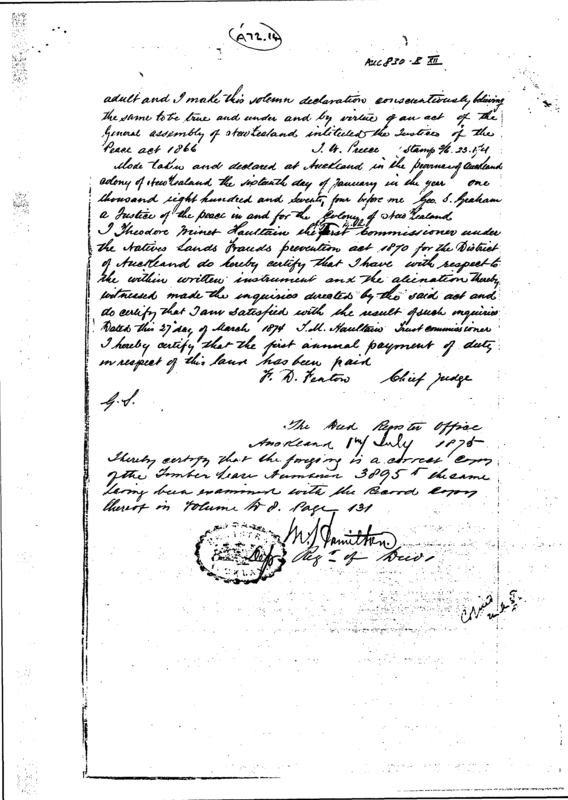 A72.14
AUC 830-E XII
adult and I make this solemn declaration conscientiously believing
the same to be true and under and by virtue of an act of the
General assembly of New Zealand intituled the Justices of the
Peace act 1866 J. W. Preece Stamp
Made taken and declared at Auckland in the province of Auckland
colony of New Zealand the sixteenth day of January in the year one
thousand eight hundred and seventy four before me Geo. S. Graham
a Justice of the peace in and for the Colony of New Zealand
I Theodore Minet Haultain the Trust Commissioner under
the Natives Lands Frauds prevention act 1870 for the District
of Auckland do hereby certify that I have with respect to
the within written instrument and the alienation thereby
witnessed made the inquiries directed by the said act and
do certify that I am satisfied with the result of such inquiries
Dated this 27 day of March 1874 T. M. Haultain Trust commissioner
I hereby certify that the first annual payment of duty
in respect of this land has been paid
F. D. Fenton Chief Judge
G. S.
The Deed Register Office
Auckland July 1875
I hereby certify that the foregoing is a correct Copy
of the Timber Lease Number 3895 the same
having been examined with the Record Copy
thereof in Volume W 8. Page 131
Hamilton
Dep Regr of Deeds
Copied